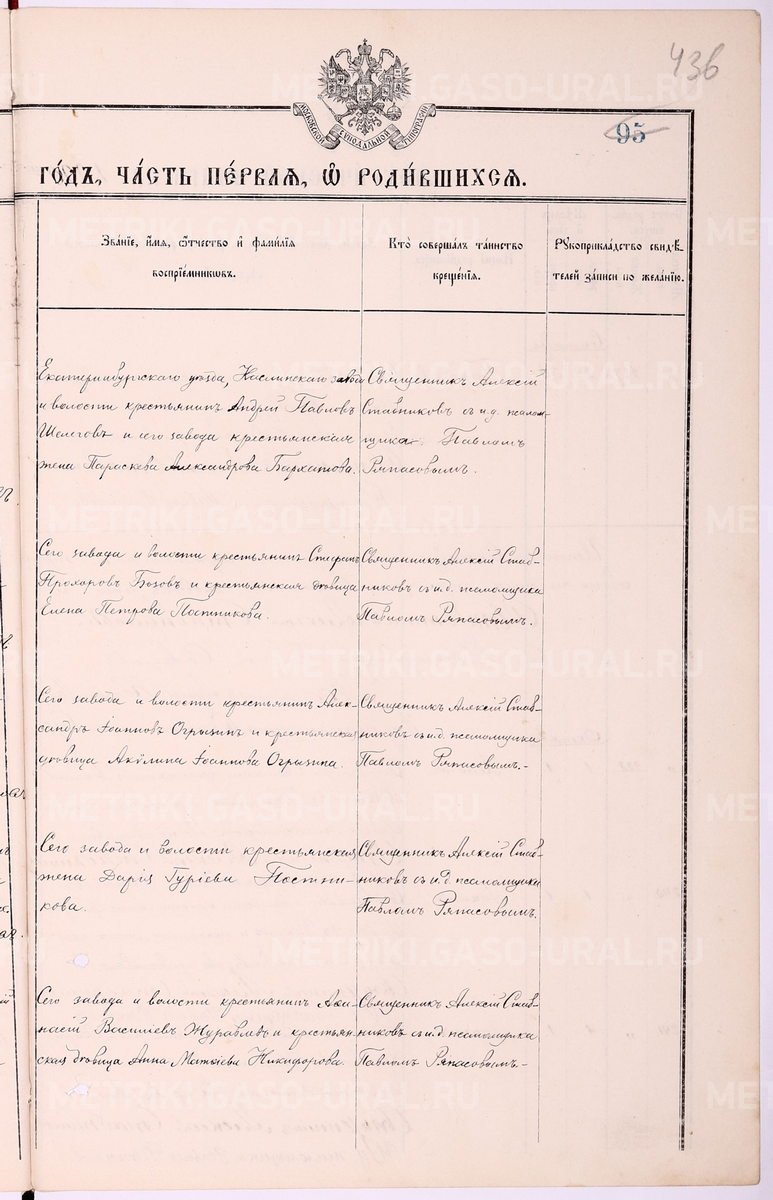 436
МОСКОВСКОЙ СѴНОДАЛЬНОЙ ТИПОГРАФІИ
95
ГО́ДЪ, ЧА́СТЬ ПЕ́РВАЯ, Ѽ РОДИ́ВШИХСЯ.
Зва́нїе, и҆́мѧ, ѻ҆́тчество и҆ фами́лїѧ
воспрїе́мникѡвъ.
Кто̀ соверша́лъ та́инство
креще́нїѧ.
Рꙋкоприкла́дство свидѣ́-
телей за́писи по жела́нїю.
Екатеринбургскаго уѣзда, Каслинскаго завода
и волости крестьянинъ Андрей Павловъ
Шелеговъ и сего завода крестьянская
жена Параскева Александрова Бархатова.
Священникъ Алексій
Ставниковъ съ и.д. псалом-
щика Павломъ
Ряпасовымъ.
Сего завода и волости крестьянинъ Стефанъ
Прохоровъ Бозовъ и крестьянская дѣвица
Елена Петрова Постникова.
Священникъ Алексій Став-
никовъ съ и.д. псаломщика
Павломъ Ряпасовымъ.
Сего завода и волости крестьянинъ Алек-
сандръ Іоанновъ Огрызинъ и крестьянская
дѣвица Акулина Іоаннова Огрызина.
Священникъ Алексій Став-
никовъ съ и.д. псаломщика
Павломъ Ряпасовымъ.-
Сего завода и волости крестьянская
жена Дарія Гуріева Постни-
кова.
Священникъ Алексій Став-
никовъ съ и.д. псаломщика
Павломъ Ряпасовымъ.
Сего завода и волости крестьянинъ Афа-
насій Василіевъ Журавлевъ и крестьян-
ская дѣвица Анна Матѳіева Никифорова.
Священникъ Алексій Став-
никовъ съ и.д. псаломщика
Павломъ Ряпасовымъ.-
METRIKI.GASO-URAL.RU